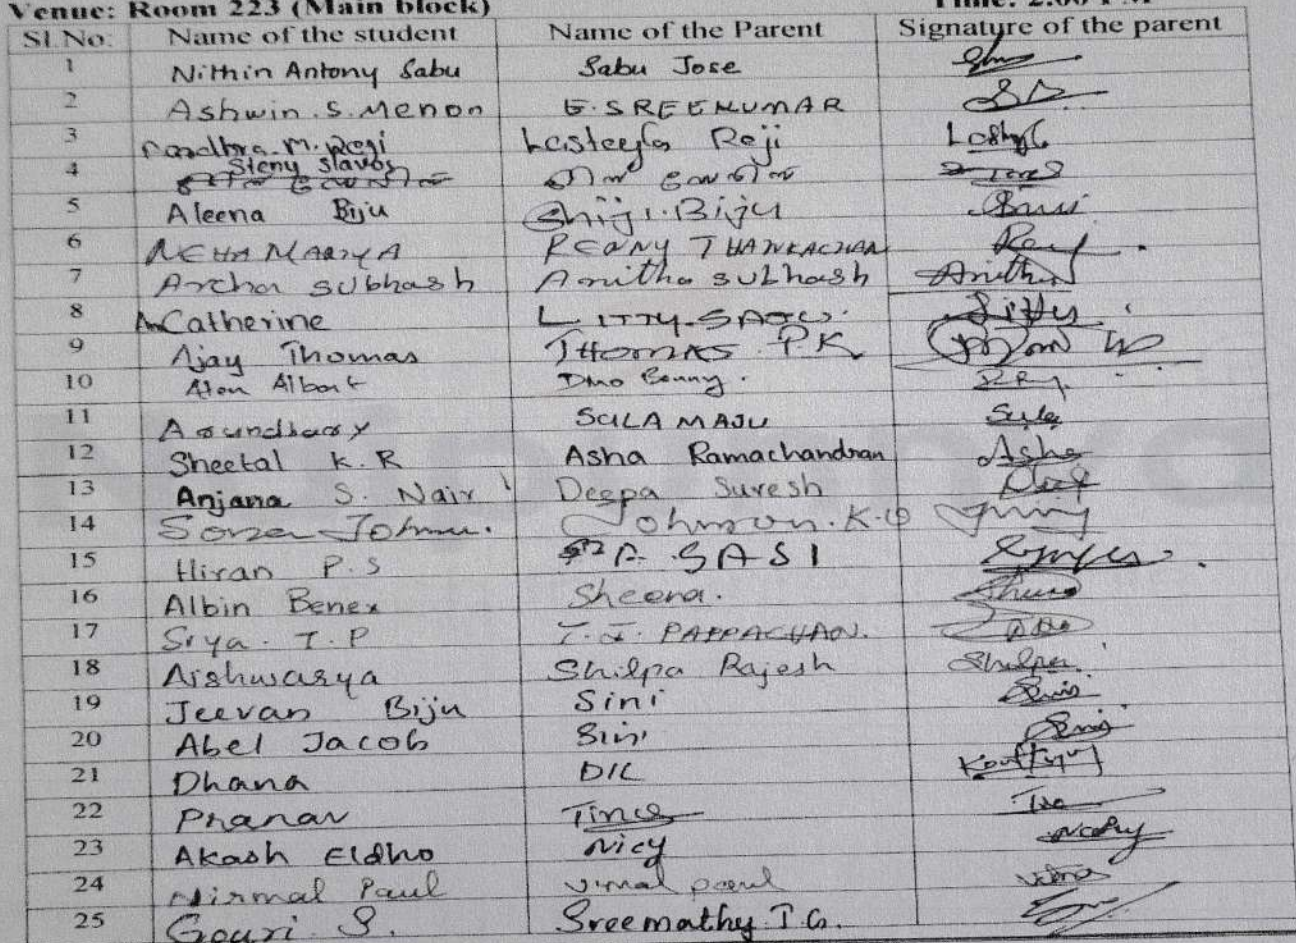 Venue: Room 223 (Main block)
Sl.No. Name of the student Name of the Parent Signature of the parent
1 Nithin Antony Sabu Sabu Jose
2 Ashwin.S.Menon G.SREEKUMAR
3 M. Regi Reji
4 Steny Slavos
5 Aleena Biju Shiji.Biju
6 NEHA MARIYA REONY THANKACHAN
7 Archa subhash Anitha subhash Anitha
8 Catherine LITTY SAJU Litty
9 Ajay Thomas THOMAS PK
10 Alan Albert Dino Benny.
11 Arundhathy SULA MAJU Sula
12 Sheetal K.R Asha Ramachandran Asha
13 Anjana S. Nair Deepa Suresh
14 Johnson.K.
15 Hiran P.S A. SASI
16 Albin Benex Sheena.
17 Siya. T.P T.J. PAPPACHAN.
18 Aishwarya Shilpa Rajesh Shilpa
19 Jeevan Biju Sini
20 Abel Jacob Sini
21 Dhana DIL
22 Pranav Tince
23 Akash Eldho Nicy
24 Nirmal Paul Vimal paul
25 Gouri. S. Sreemathy.T.G.